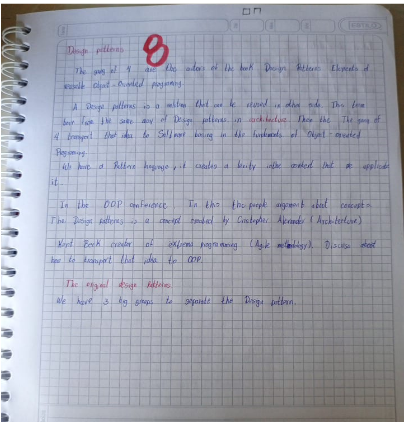 Design patterns
8
The gang of 4 are the authors of the book Design Patterns Elements of
reusable object-Oriented programing.
A Design patterns is a solution that can be reused in other side. This term
born from the same away of Design patterns in architecture. Then the The gang of
4 transport that idea to Software basing in the fundaments of Object-oriented
Programing.
We have a Pattern language, it creates a the context that we applicate
it.
In the OOP conference. In this the people argument about concepts
The Design patterns is a concept created by Cristopher Alexander (Architecture)
Kent Beck creator of extreme programming (Agile). Discuss about
how to transport that idea to OOP.
The original design patterns
We have 3 big groups to separate the Design pattern.